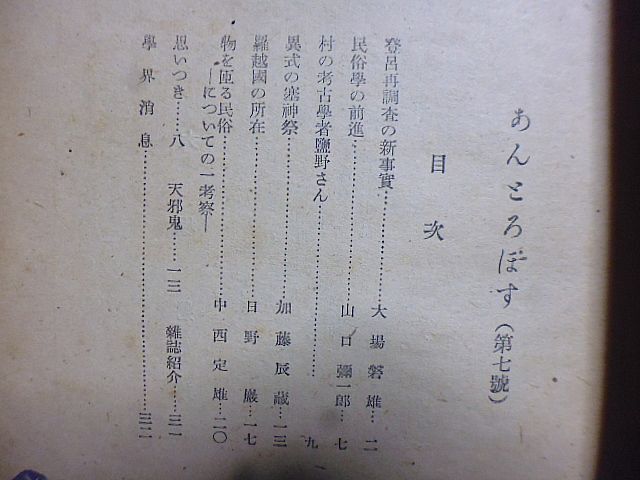 あんとろぽす（第七號）
目次
登呂再調査の新事實…………大場磐雄…二
民俗學の前進…………山口彌一郎…七
村の考古學者鹽野さん…………九
異式の塞神祭…………加藤辰藏…一三
羅越國の所在…………日野巖…一七
物を匝る民俗…………中西定雄…二〇
―についての一考察―
思いつき……八　天邪鬼……一三　雜誌紹介……三一
學界消息…………三二